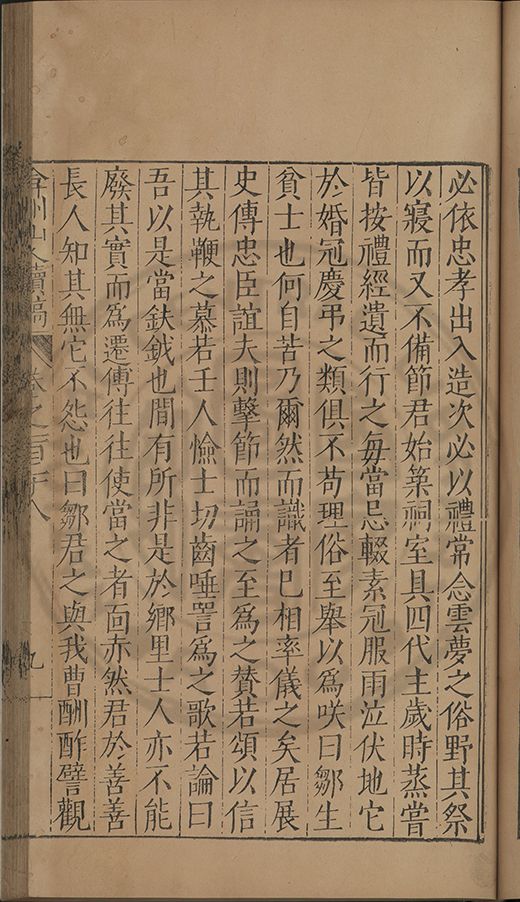 必依忠孝出入造次必以禮常念雲夢之俗野其祭
以寢而又不備節君始築祠室具四代主歲時蒸嘗
皆按禮經遺而行之每當忌輟素冠服雨泣伏地它
於婚冠慶弔之類俱不苟理俗至舉以為咲曰鄒生
貧士也何自苦乃爾然而識者已相率儀之矣居展
史傳忠臣誼夫則擊節而誦之至為之贊若頌以信
其執鞭之慕若壬人憸士切齒唾詈為之歌若論曰
吾以是當鈇鉞也間有所非是於鄉里士人亦不能
廢其實而為遷傅往往使當之者面赤然君於善善
長人知其無它不怨也曰鄒君之與我曹酬酢譬觀
弇州山人續稿 卷之一百十八 九